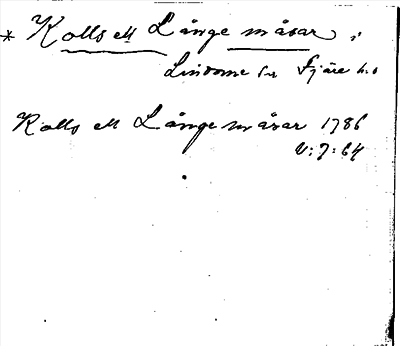 * Kolls ell Långe måsar i
Lindome sn Fjäre h.d
Kolls ell Långe måsar 1786
V:7:64